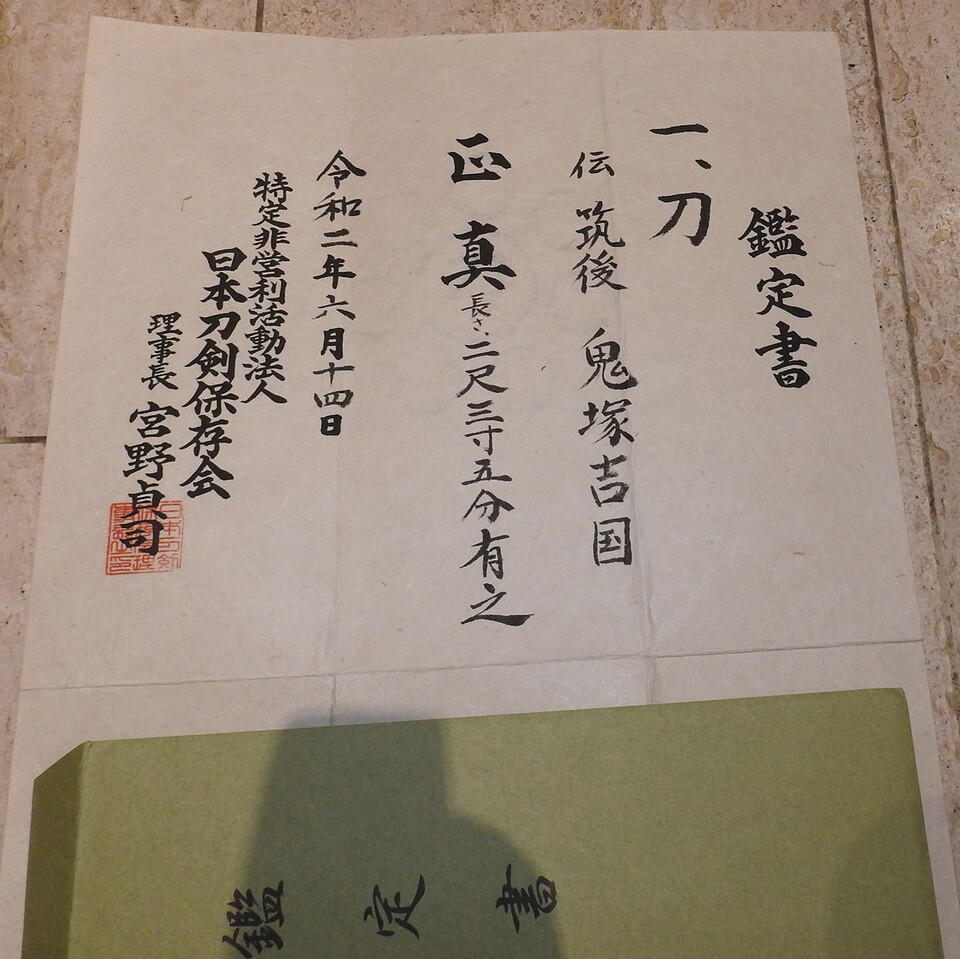 鑑定書
一、刀
伝 筑後 鬼塚吉国
正真 長さ、二尺三寸五分有之
令和二年六月十四日
特定非営利活動法人
日本刀剣保存会
理事長 宮野貞司
鑑定書